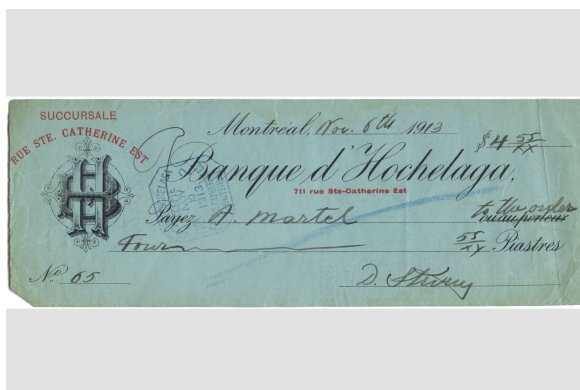 SUCCURSALE
RUE STE. CATHERINE EST
Montréal, Nov. 6th 1913
$4 55/xx
Banque d'Hochelaga,
711 rue Ste-Catherine Est
Payez A. Martel to the order
ou au porteur
Four 55/xy Piastres
No 65
D.